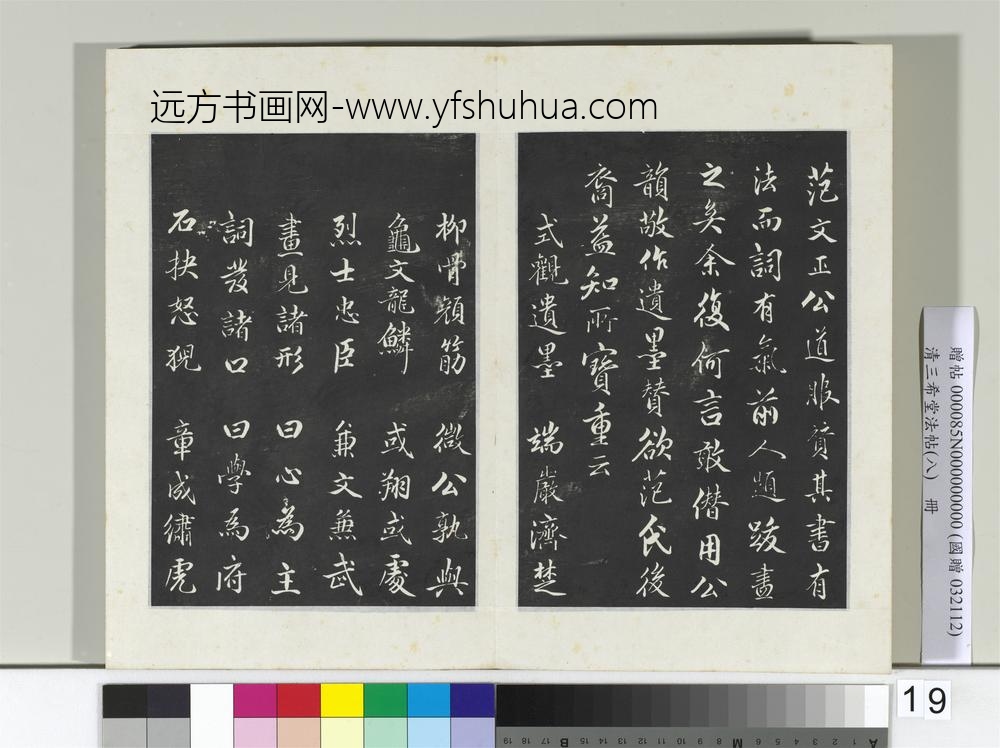 远方书画网-www.yfshuhua.com
范文正公道服賛其書有
法而詞有氣前人題跋盡
之矣余復何言敢僭用公
韻敬作遺墨賛欲范氏後
裔益知所寶重云
式觀遺墨 端嚴濟楚
柳骨顔筋 微公孰與
龜文龍鱗 或翔或處
烈士忠臣 兼文兼武
畫見諸形 曰心為主
詞發諸口 曰學為府
石抉怒猊 章成繡虎
贈帖 000085N000000000 (國贈 032112)
清三希堂法帖(八) 冊
19